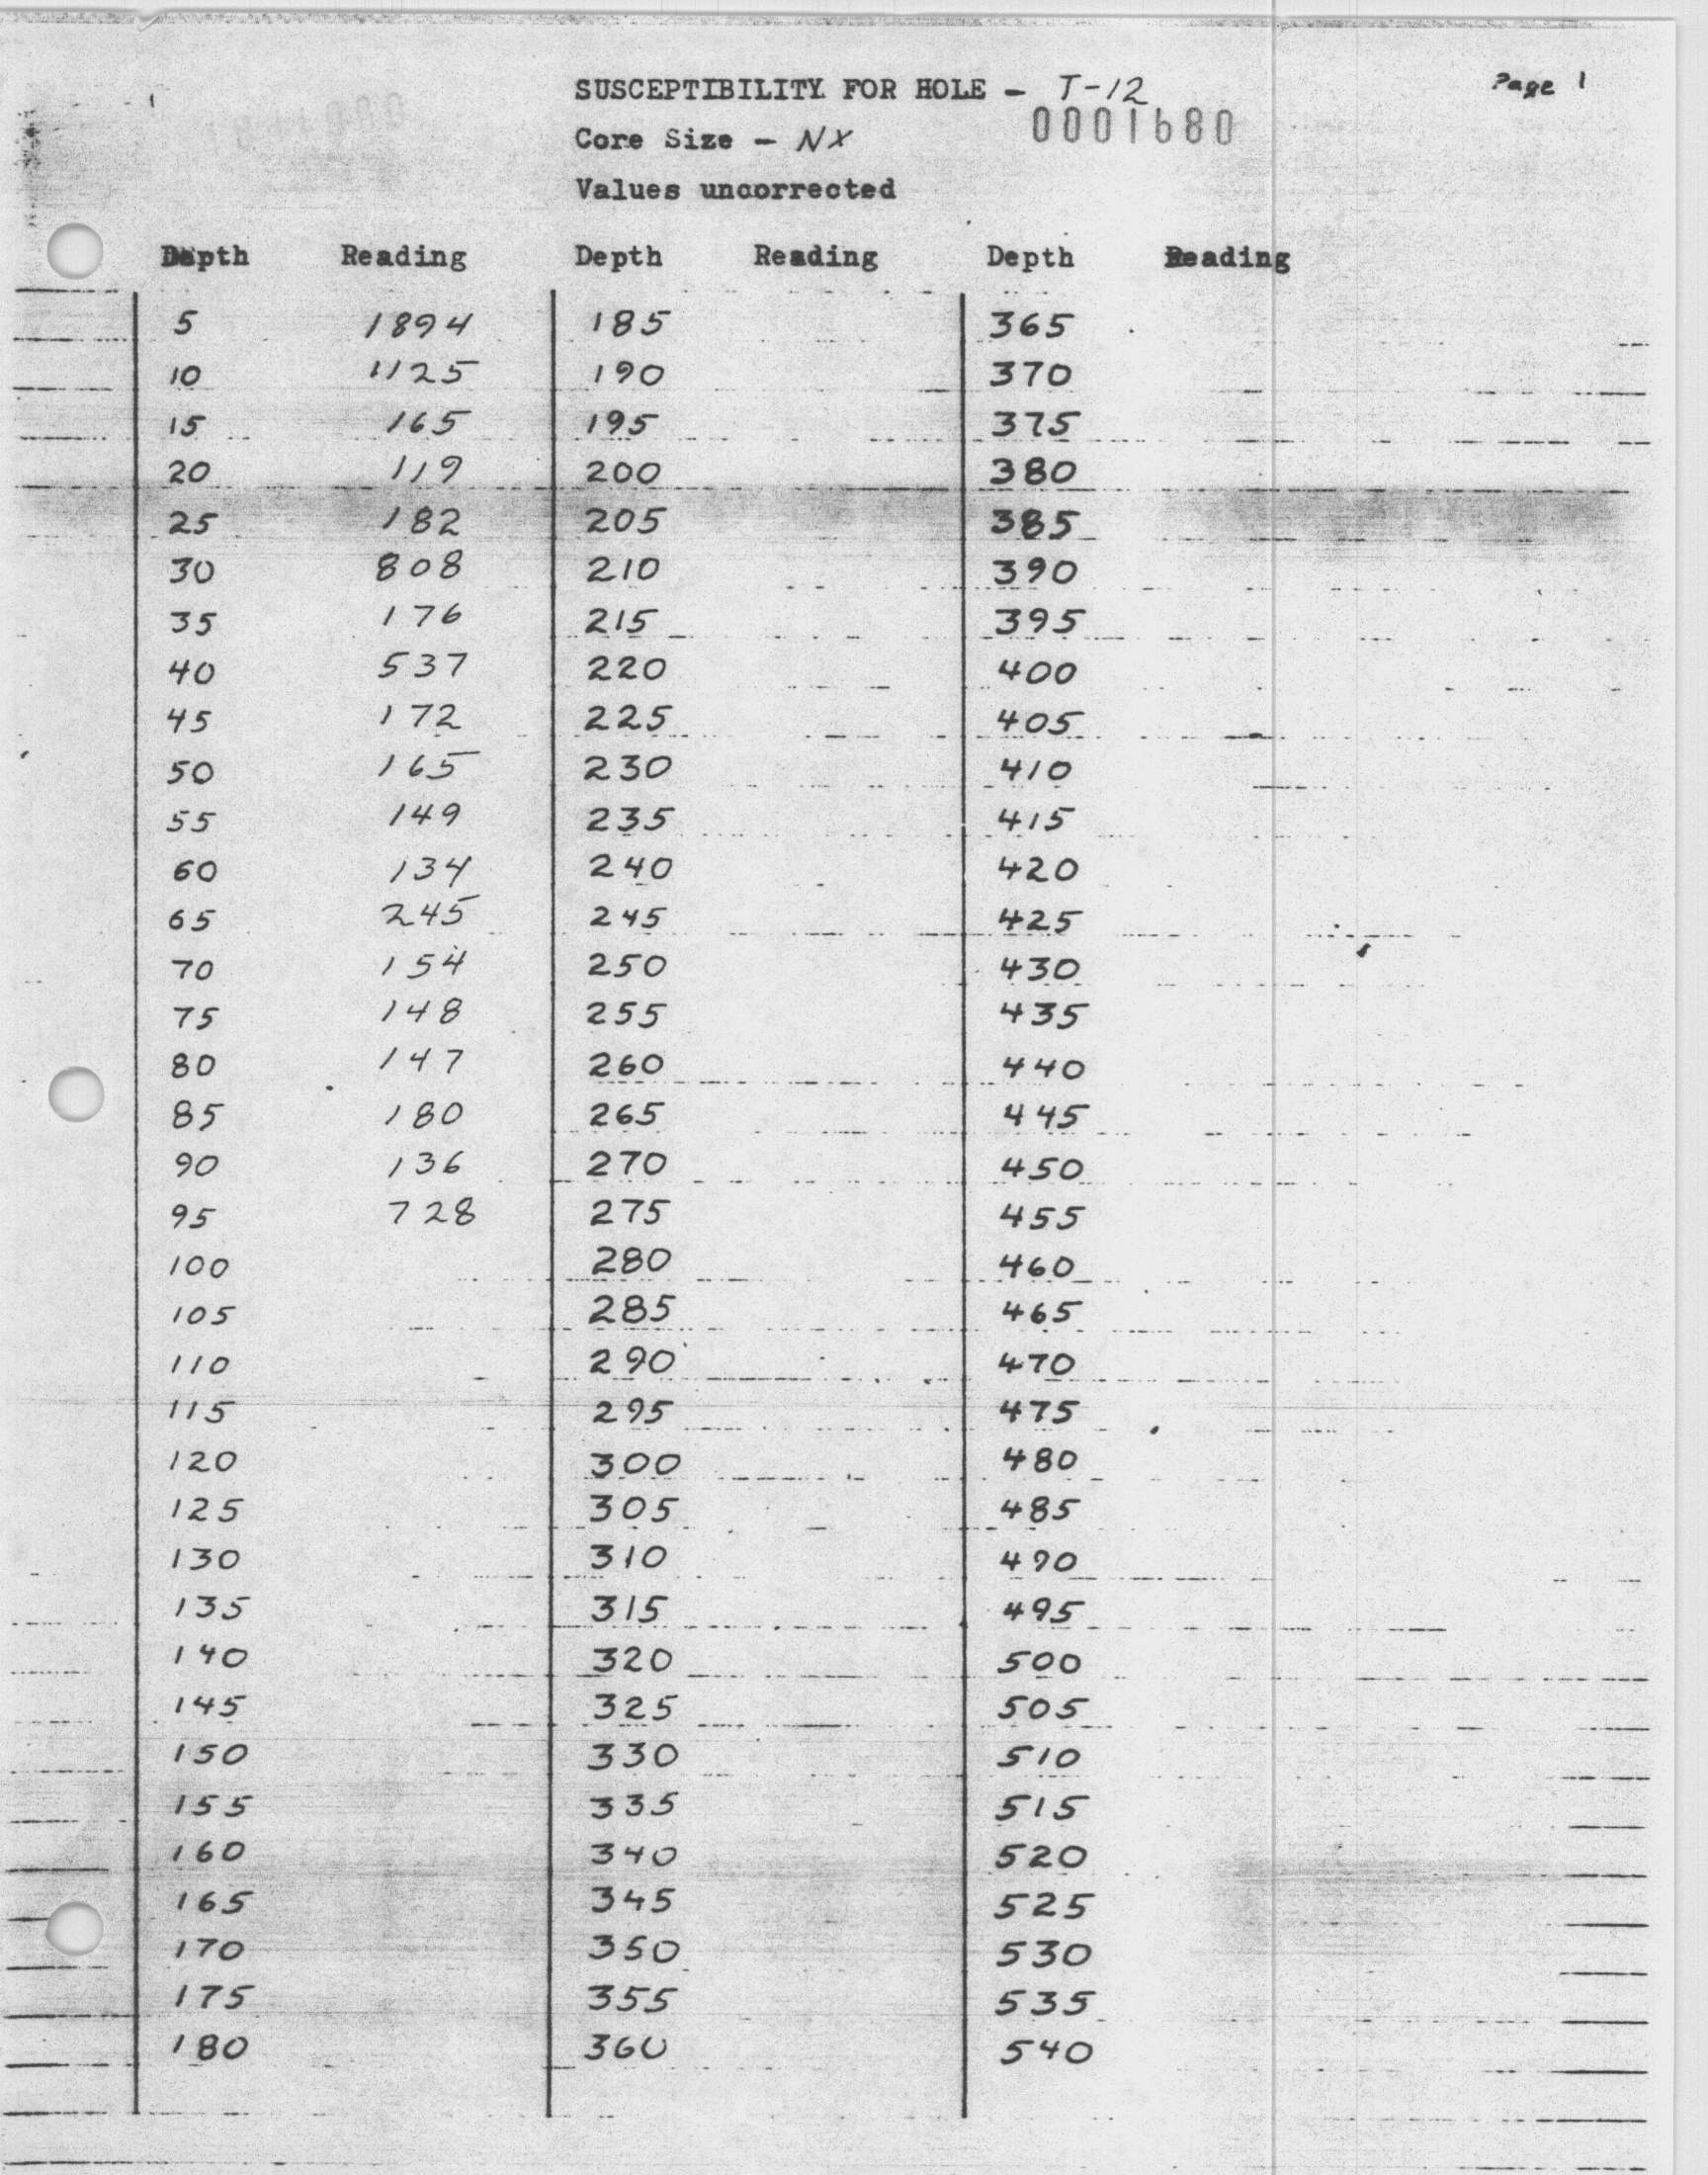 SUSCEPTIBILITY FOR HOLE - T-12 Page 1
0001680
Core Size - NX
Values uncorrected
Depth Reading Depth Reading Depth Reading
5 1894 185 365
10 1125 190 370
15 165 195 375
20 119 200 380
25 182 205 385
30 808 210 390
35 176 215 395
40 537 220 400
45 172 225 405
50 165 230 410
55 149 235 415
60 134 240 420
65 245 245 425
70 154 250 430
75 148 255 435
80 147 260 440
85 180 265 445
90 136 270 450
95 728 275 455
100 280 460
105 285 465
110 290 470
115 295 475
120 300 480
125 305 485
130 310 490
135 315 495
140 320 500
145 325 505
150 330 510
155 335 515
160 340 520
165 345 525
170 350 530
175 355 535
180 360 540